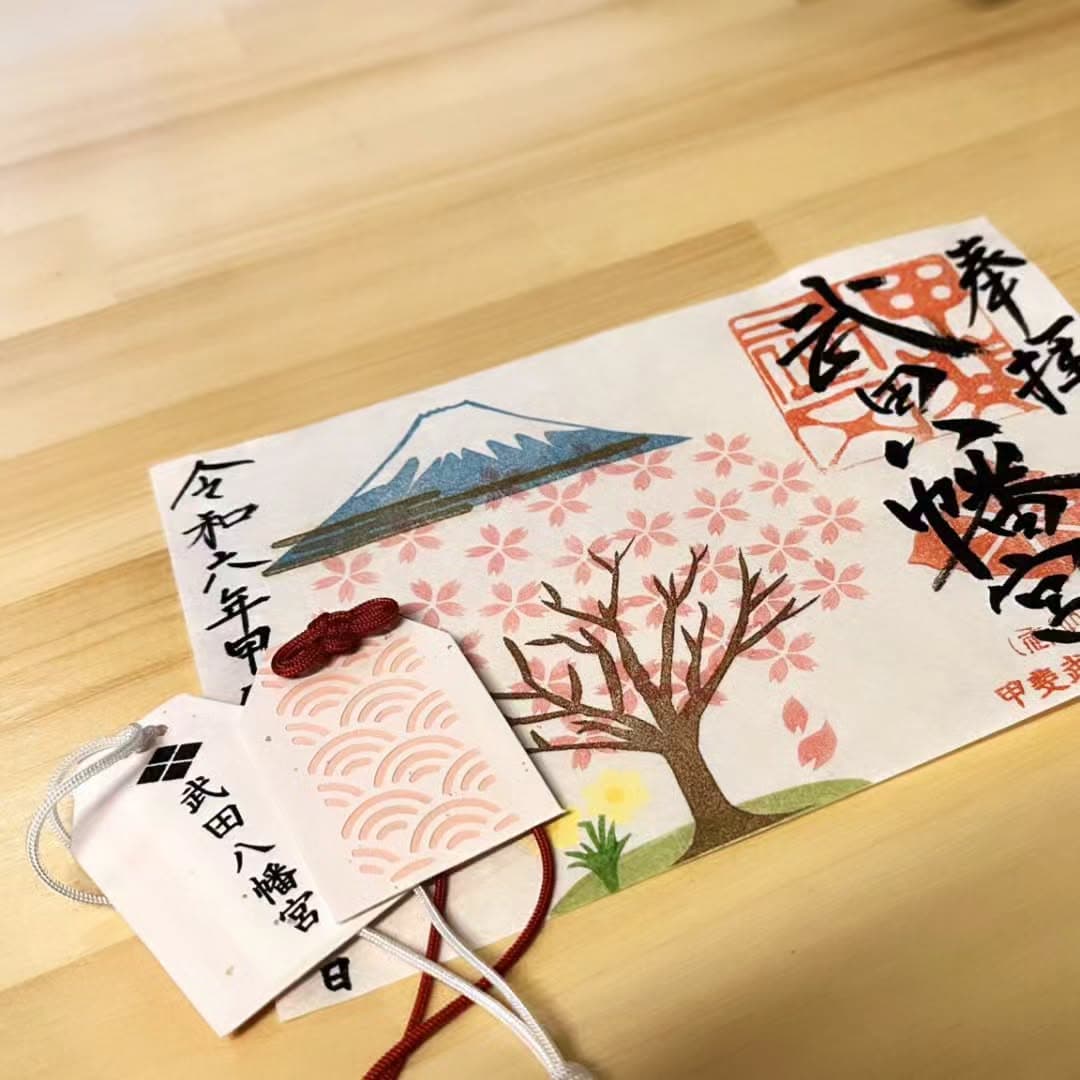 奉拝
武田八幡宮
甲斐武
令和六年甲
日
武田八幡宮